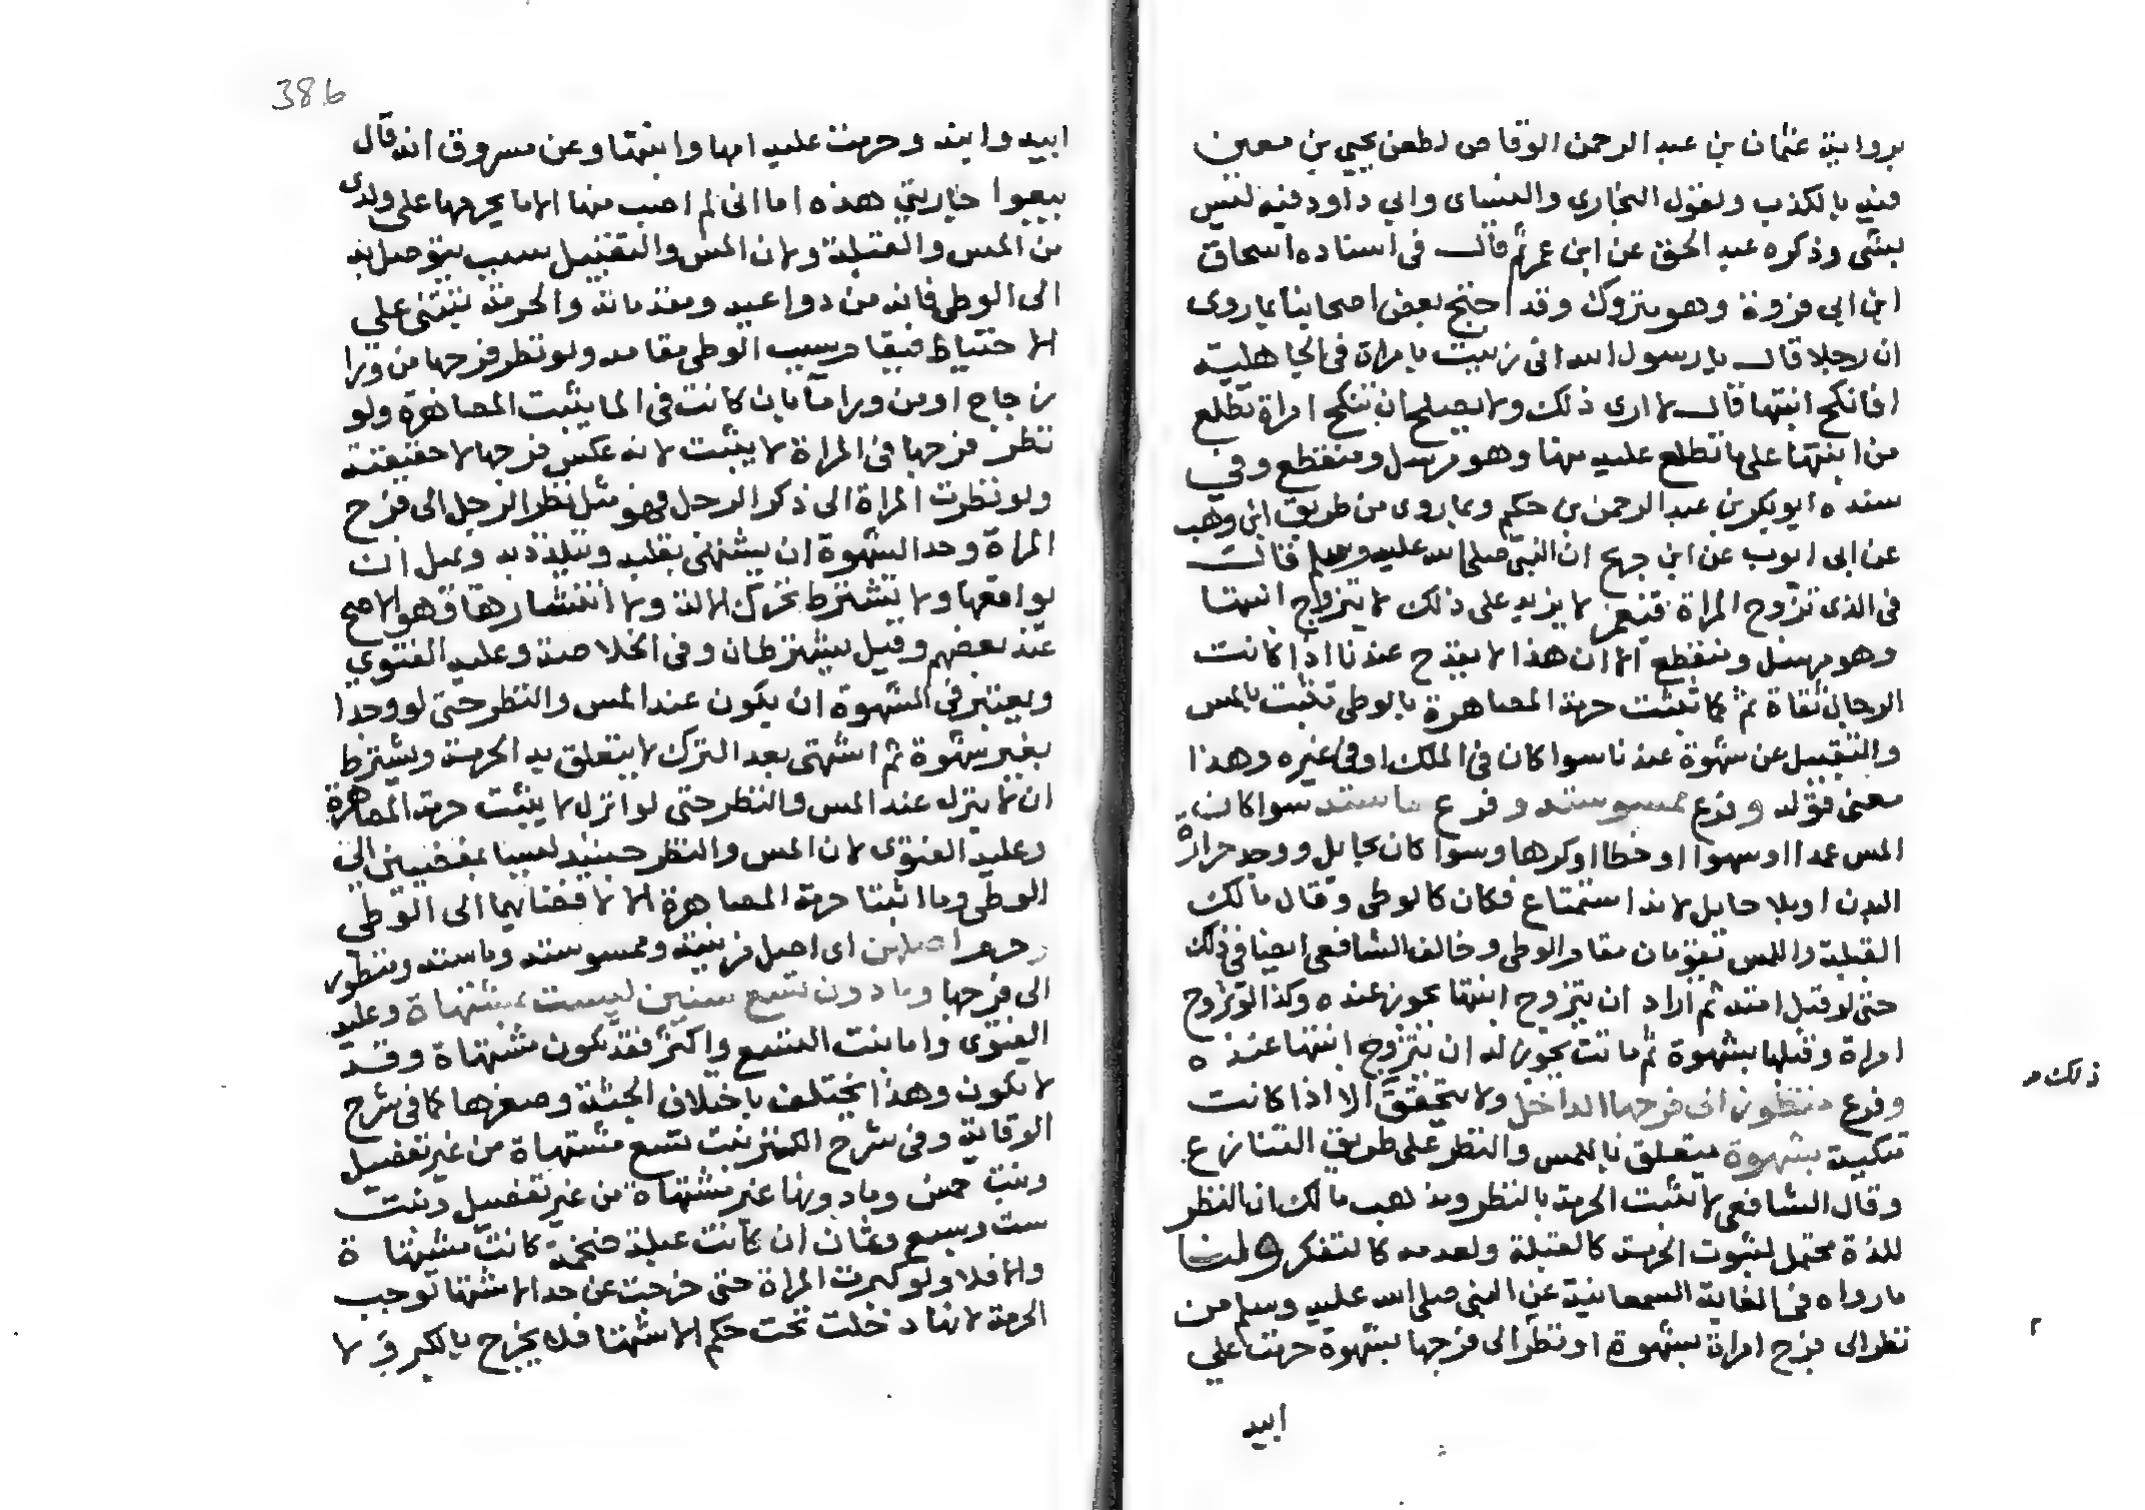 برواية عثمان بن عبد الرحمن الوقاص لطعن يحيى بن معين
فيه بالكذب ولقول البخاري والنساى وابي داود فيه ليس
بشى وذكره عبد الحق عن ابن عمر ثم قال في اسناده اسحاق
ابن ابي فروة وهو متروك وقد احتج بعض اصحابنا بما روى
ان رجلا قال يا رسول الله انى زنيت بامراة في الجاهلية
افانكح ابنتها قال لا ارى ذلك ولا يصلح ان تنكح امراة تطلع
من ابنتها على ما تطلع عليه منها وهو مرسل ومنقطع وفي
سنده ابو بكر بن عبد الرحمن بن حكم وبما روى من طريق ابن وهب
عن ابى ايوب عن ابن جريج ان النبي صلى الله عليه وسلم قال
في الذى تزوج المراة فيغمز لا يزيد على ذلك لا يتزوج ابنتها
وهو مرسل ومنقطع الا ان هذا لا يقدح عندنا اذا كانت
الرجال ثقاة ثم كما تثبت حرمة المصاهرة بالوطى تثبت بالمس
والتقبيل عن شهوة عندنا سوا كان في الملك او في غيره وهذا
معنى قوله وفرع ممسوسته وفرع ماسته سوا كان
المس عمدا او سهوا او خطا او كرها وسوا كان بحايل ووجد حرارة
البدن او بلا حايل لانه استمتاع فكان كالوطى وقال مالك
القبلة واللمس تقومان مقام الوطى وخالف الشافعى ايضا في ذلك
حتى لو قبل امته ثم اراد ان يتزوج ابنتها يجوز عنده وكذا لو تزوج
امراة وقبلها بشهوة ثم ماتت يجوز له ان يتزوج ابنتها عنده
وفرع منظور الى فرجها الداخل ولا يتحقق الا اذا كانت ذلك
متكية بشهوة متعلق بالمس والنظر على طريق التنازع
وقال الشافعى لا تثبت الحرمة بالنظر ومذهب مالك ان النظر
للذة محتمل لثبوت الحرمة كالقبلة ولعدمه كالتفكر ولنا
ما رواه في الغاية السمعانية عن النبى صلى الله عليه وسلم من
نظر الى فرج امراة بشهوة او نظر الى فرجها بشهوة حرمت على
ابيه
386
ابيه وابنه وحرمت عليه امها وابنتها وعن مسروق انه قال
بيعوا جاريتي هذه اما انى لم اصب منها الا ما يحرمها على ولدى
من المس والقبلة ولان المس والتقبيل سبب يتوصل به
الى الوطى فانه من دواعيه ومقدماته والحرمة تبتنى على
الاحتياط فيقام سبب الوطى مقامه ولو نظر فرجها من ورا
زجاج او من ورا ما بان كانت في الما يثبت المصاهرة ولو
نظر فرجها في المراة لا يثبت لانه عكس فرجها لا حقيقته
ولو نظرت المراة الى ذكر الرجل فهو مثل نظر الرجل الى فرج
المراة وحد الشهوة ان يشتهى بقلبه ويتلذذ به ويميل ان
يواقعها ولا يشترط تحرك الالة ولا انتشارها وهو الاصح
عند بعضهم وقيل يشترطان وفى الخلاصة وعليه الفتوي
ويعتبر في الشهوة ان يكون عند المس والنظر حتى لو وجدا
بغير شهوة ثم اشتهى بعد الترك لا يتعلق به الحرمة ويشترط
ان لا ينزل عند المس والنظر حتى لو انزل لا يثبت حرمة المصاهرة
وعليه الفتوى لان المس والنظر حينيذ ليسا بمفضيين الى
الوطى وما اثبتا حرمة المصاهرة الا لافضايهما الى الوطى
وحرم اصلهن اى اصل مزنيته وممسوسته وماسته ومنظور
الى فرجها وما دون تسع سنين ليست بمشتهاة وعليه
الفتوى واما بنت التسع واكثر فقد تكون مشتهاة وقد
لا تكون وهذا يختلف باختلاف الجثة وصغرها كما في شرح
الوقاية وفى شرح الكنز بنت تسع مشتهاة من غير تفصيل
وبنت خمس وما دونها غير مشتهاة من غير تفصيل وبنت
ست وسبع وثمان ان كانت عبلة ضخمة كانت مشتهاة
والا فلا ولو كبرت المراة حتى خرجت عن حد الاشتها توجب
الحرمة لانها دخلت تحت حكم الاشتها فلا يخرج بالكبر ولا